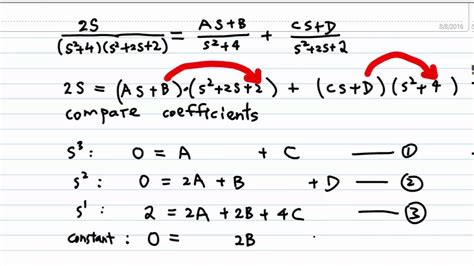 8/8/2016
2S/((S²+4)(S²+2S+2)) = (AS+B)/(S²+4) + (CS+D)/(S²+2S+2)
2S = (AS+B)·(S²+2S+2) + (CS+D)(S²+4)
compare coefficients
S³: 0 = A + C —— ①
S²: 0 = 2A + B + D —— ②
S¹: 2 = 2A + 2B + 4C —— ③
constant: 0 = 2B